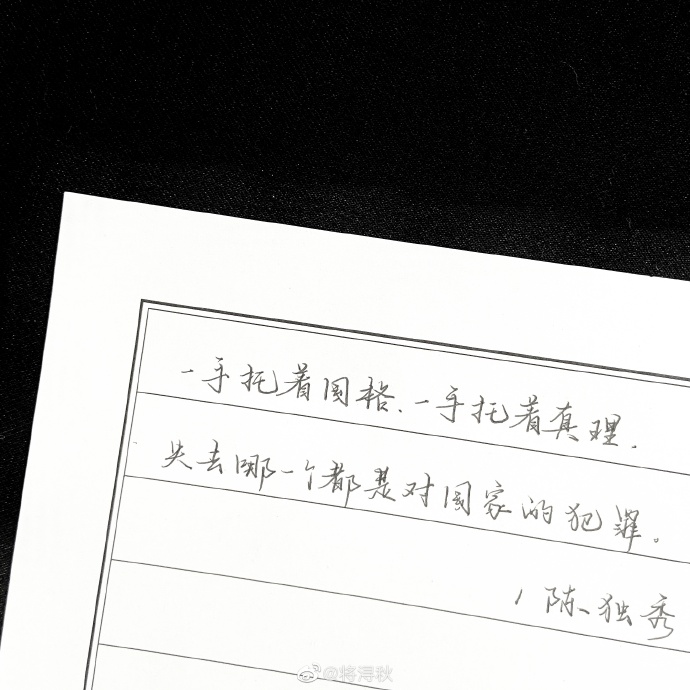 一手托着国格、一手托着真理.
失去哪一个都是对国家的犯罪。
/ 陈独秀
@将浔秋